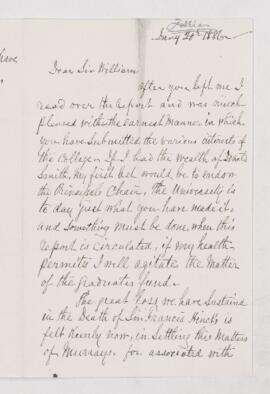 have
Jany 20th 1886
Dear Sir William
After you left me I
read over the Report and was much
pleased with the earnest manner in which
you have submitted the various interests of
the College. If I had the wealth of
Smith, my first act would be to endow
the Principals Chair, the University is
to day just what you have made it,
and something must be done, when this
report is circulated, if my health
permits I will agitate the Matter
of the graduates fund.
The great loss we have sustained
in the Death of Sir Francis Hincks is
felt keenly now, in settling this Matter
of Murrays. for associated with